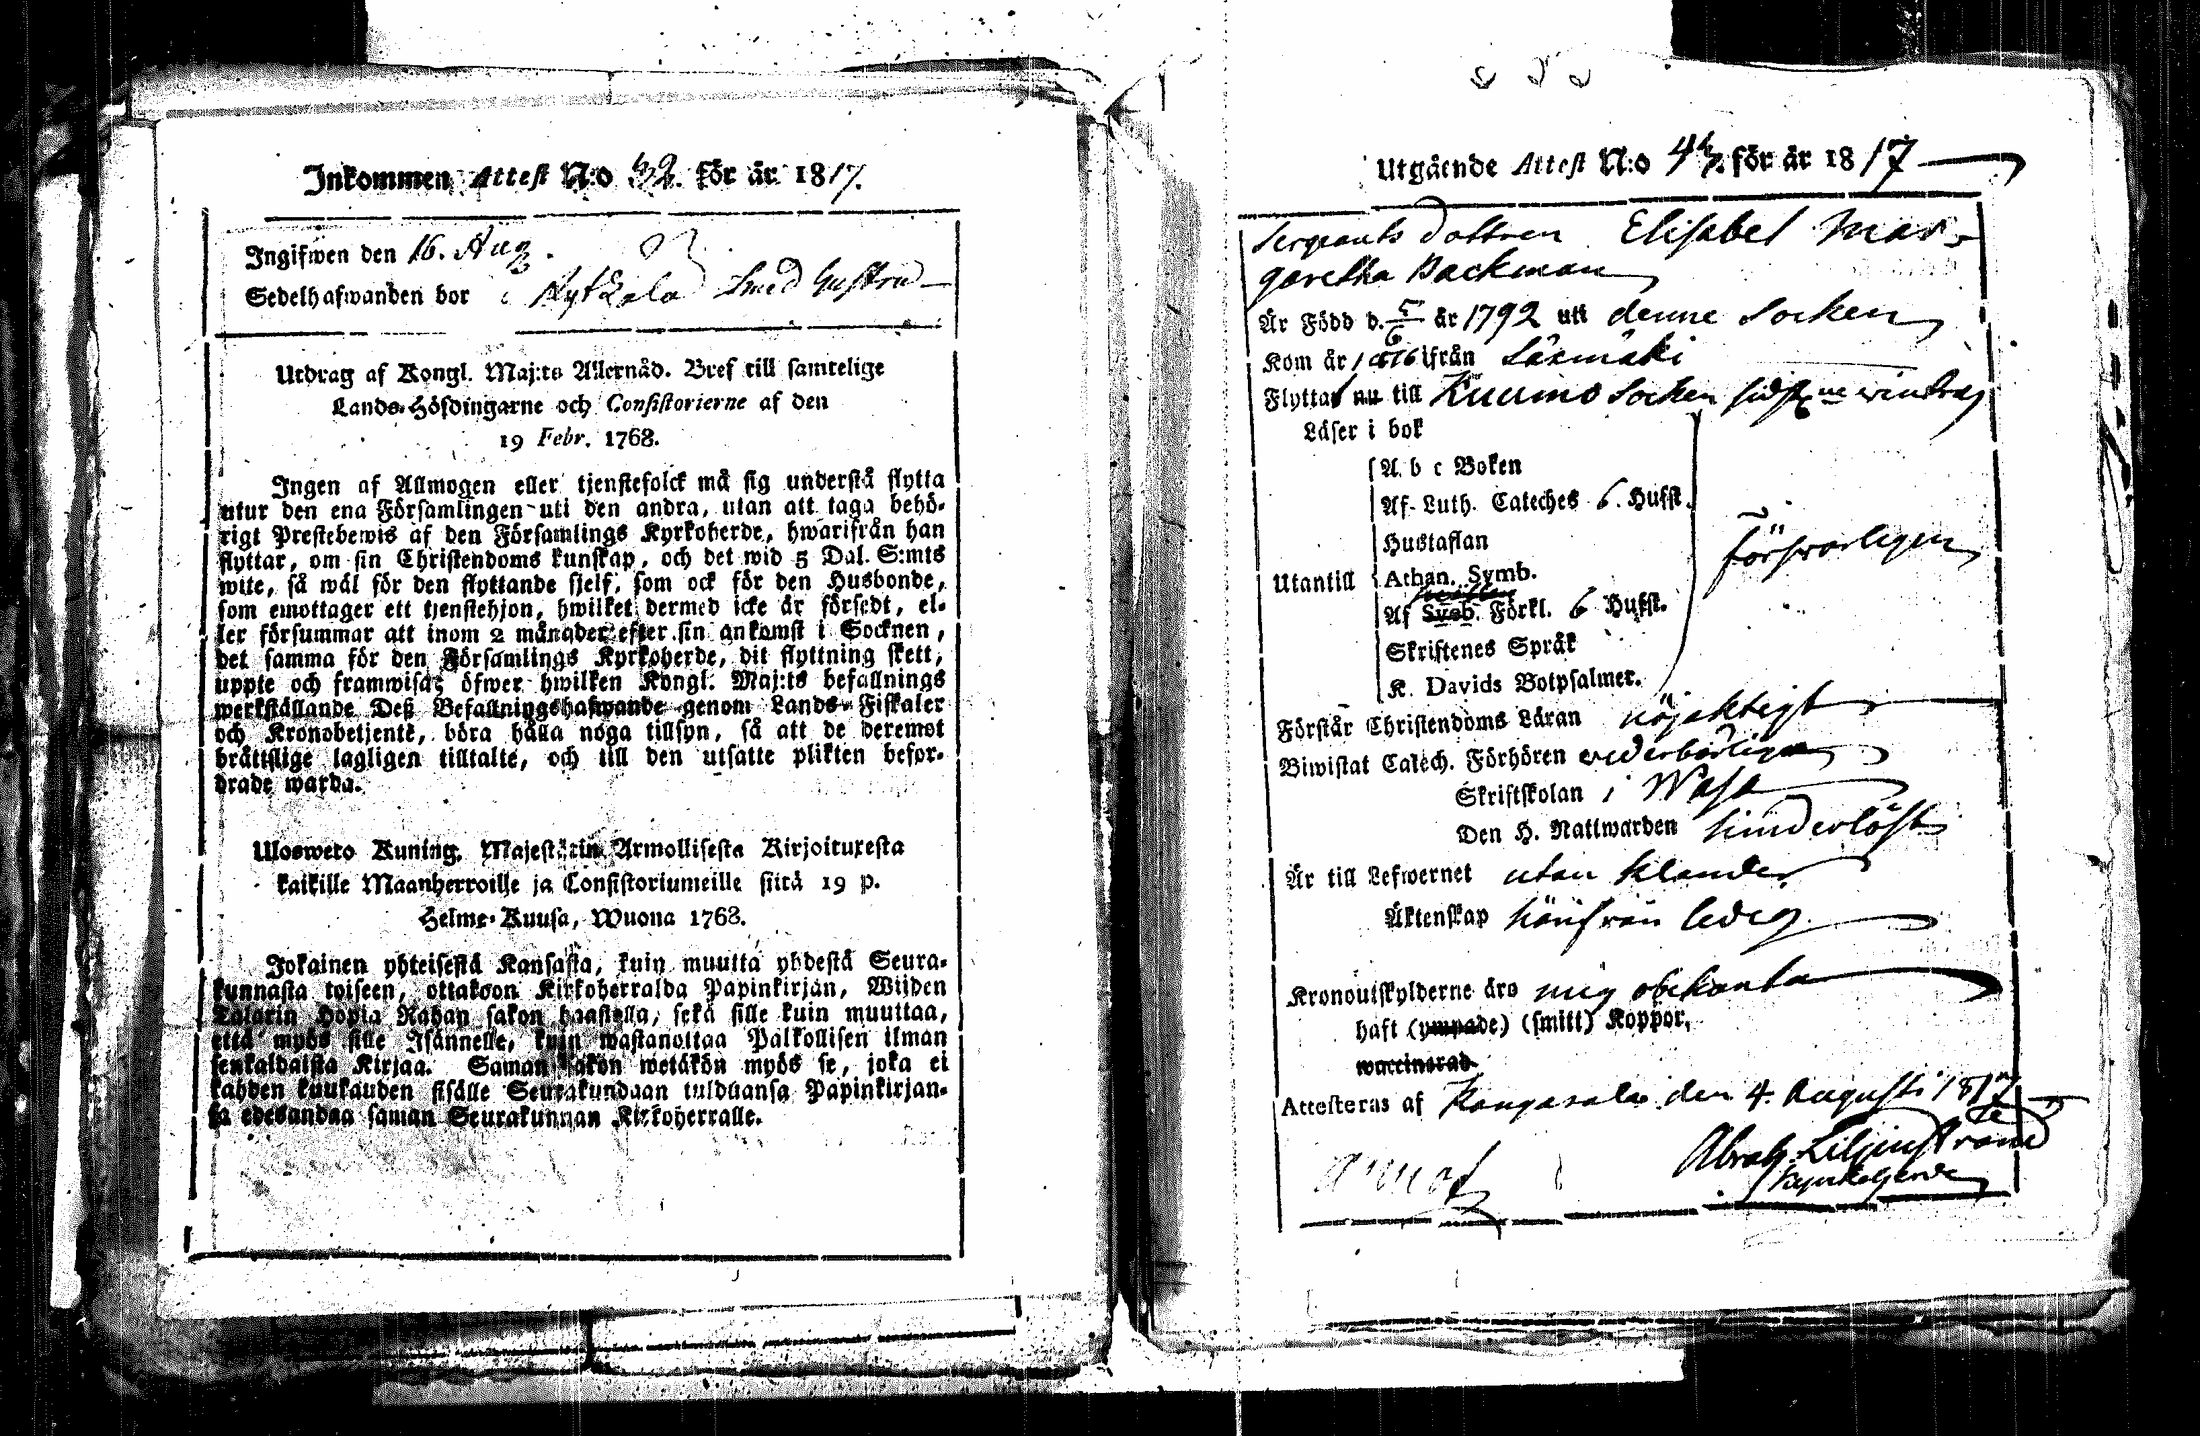 Inkommen Attest N:o 32. för år 1817.
Ingifwen den 16. Aug.
Sedelhafwanden bor
Utdrag af Kongl. Maj:ts Allernåd. Bref till samtelige
Lands-Höfdingarne och Consistorierne af den
19 Febr. 1768.
Ingen af Allmogen eller tjenstefolck må sig understå flytta
utur den ena Församlingen uti den andra, utan att taga behö-
rigt Prestebewis af den Församlings Kyrkoherde, hwarifrån han
flyttar, om sin Christendoms kunskap, och det wid 5 Dal. S:mts
wite, så wäl för den flyttande sjelf, som ock för den Husbonde,
som emottager ett tjenstehjon, hwilket dermed icke är försedt, el-
ler försummar att inom 2 månader efter sin ankomst i Socknen,
det samma för den Församlings Kyrkoherde, dit flyttning skett,
uppte och framwisa; öfwer hwilken Kongl. Maj:ts befallnings
werkställande Deß Befallningshafwande genom Lands-Fiskaler
och Kronobetjente, böra hålla noga tillsyn, så att de deremot
bråttslige lagligen tilltalte, och till den utsatte plikten befor-
drade warda.
Ulosweto Kuning. Majestätin Armollisesta Kirjoituxesta
kaikille Maanherroille ja Consistoriumeille siitä 19 p.
Helme-Kuusa, Wuona 1768.
Jokainen yhteisestä Kansasta, kuin muutta yhdestä Seura-
kunnasta toiseen, ottakoon Kirkoherralda Papinkirjan, Wiiden
Talarin Hopia Rahan sakon haastella, sekä sille kuin muuttaa,
että myös sille Isännelle, kuin wastanottaa Palkollisen ilman
senkaldaista Kirjaa. Saman sakon wetäkön myös se, joka ei
kahden kuukauden sisälle Seurakundaan tulduansa Papinkirjan-
sa edesandaa saman Seurakunnan Kirkoherralle.
Utgående Attest N:o för år 1817
Sergeants dottren Elisabet Mar-
garetha Backman
Är Född d. 5/6 år 1792 uti denne Socken
Kom år 1816 ifrån Säxmäki
Flyttar nu till Kuumo Socken
Läser i bok
A b c Boken
Af Luth. Cateches 6. Hufst.
Hustaflan
Utantill Athan. Symb.
Af Sveb. Förkl. 6 Hufst.
Skriftenes Språk
K. Davids Botpsalmer.
Försvarligen
Förstår Christendoms Läran nöjaktigt
Biwistat Catech. Förhören vederbörligen
Skriftskolan i Wasa
Den H. Nattwarden hinderlöst
Är till Lefwernet utan klander
Äktenskap härifrån ledig
Kronoutskylderne äro mig obekanta
haft (ympade) (smitt) Koppor,
waccinerad.
Attesteras af Kangasala den 4. Augusti 1817
Abrah. Liljenstrand
Kyrkoherde